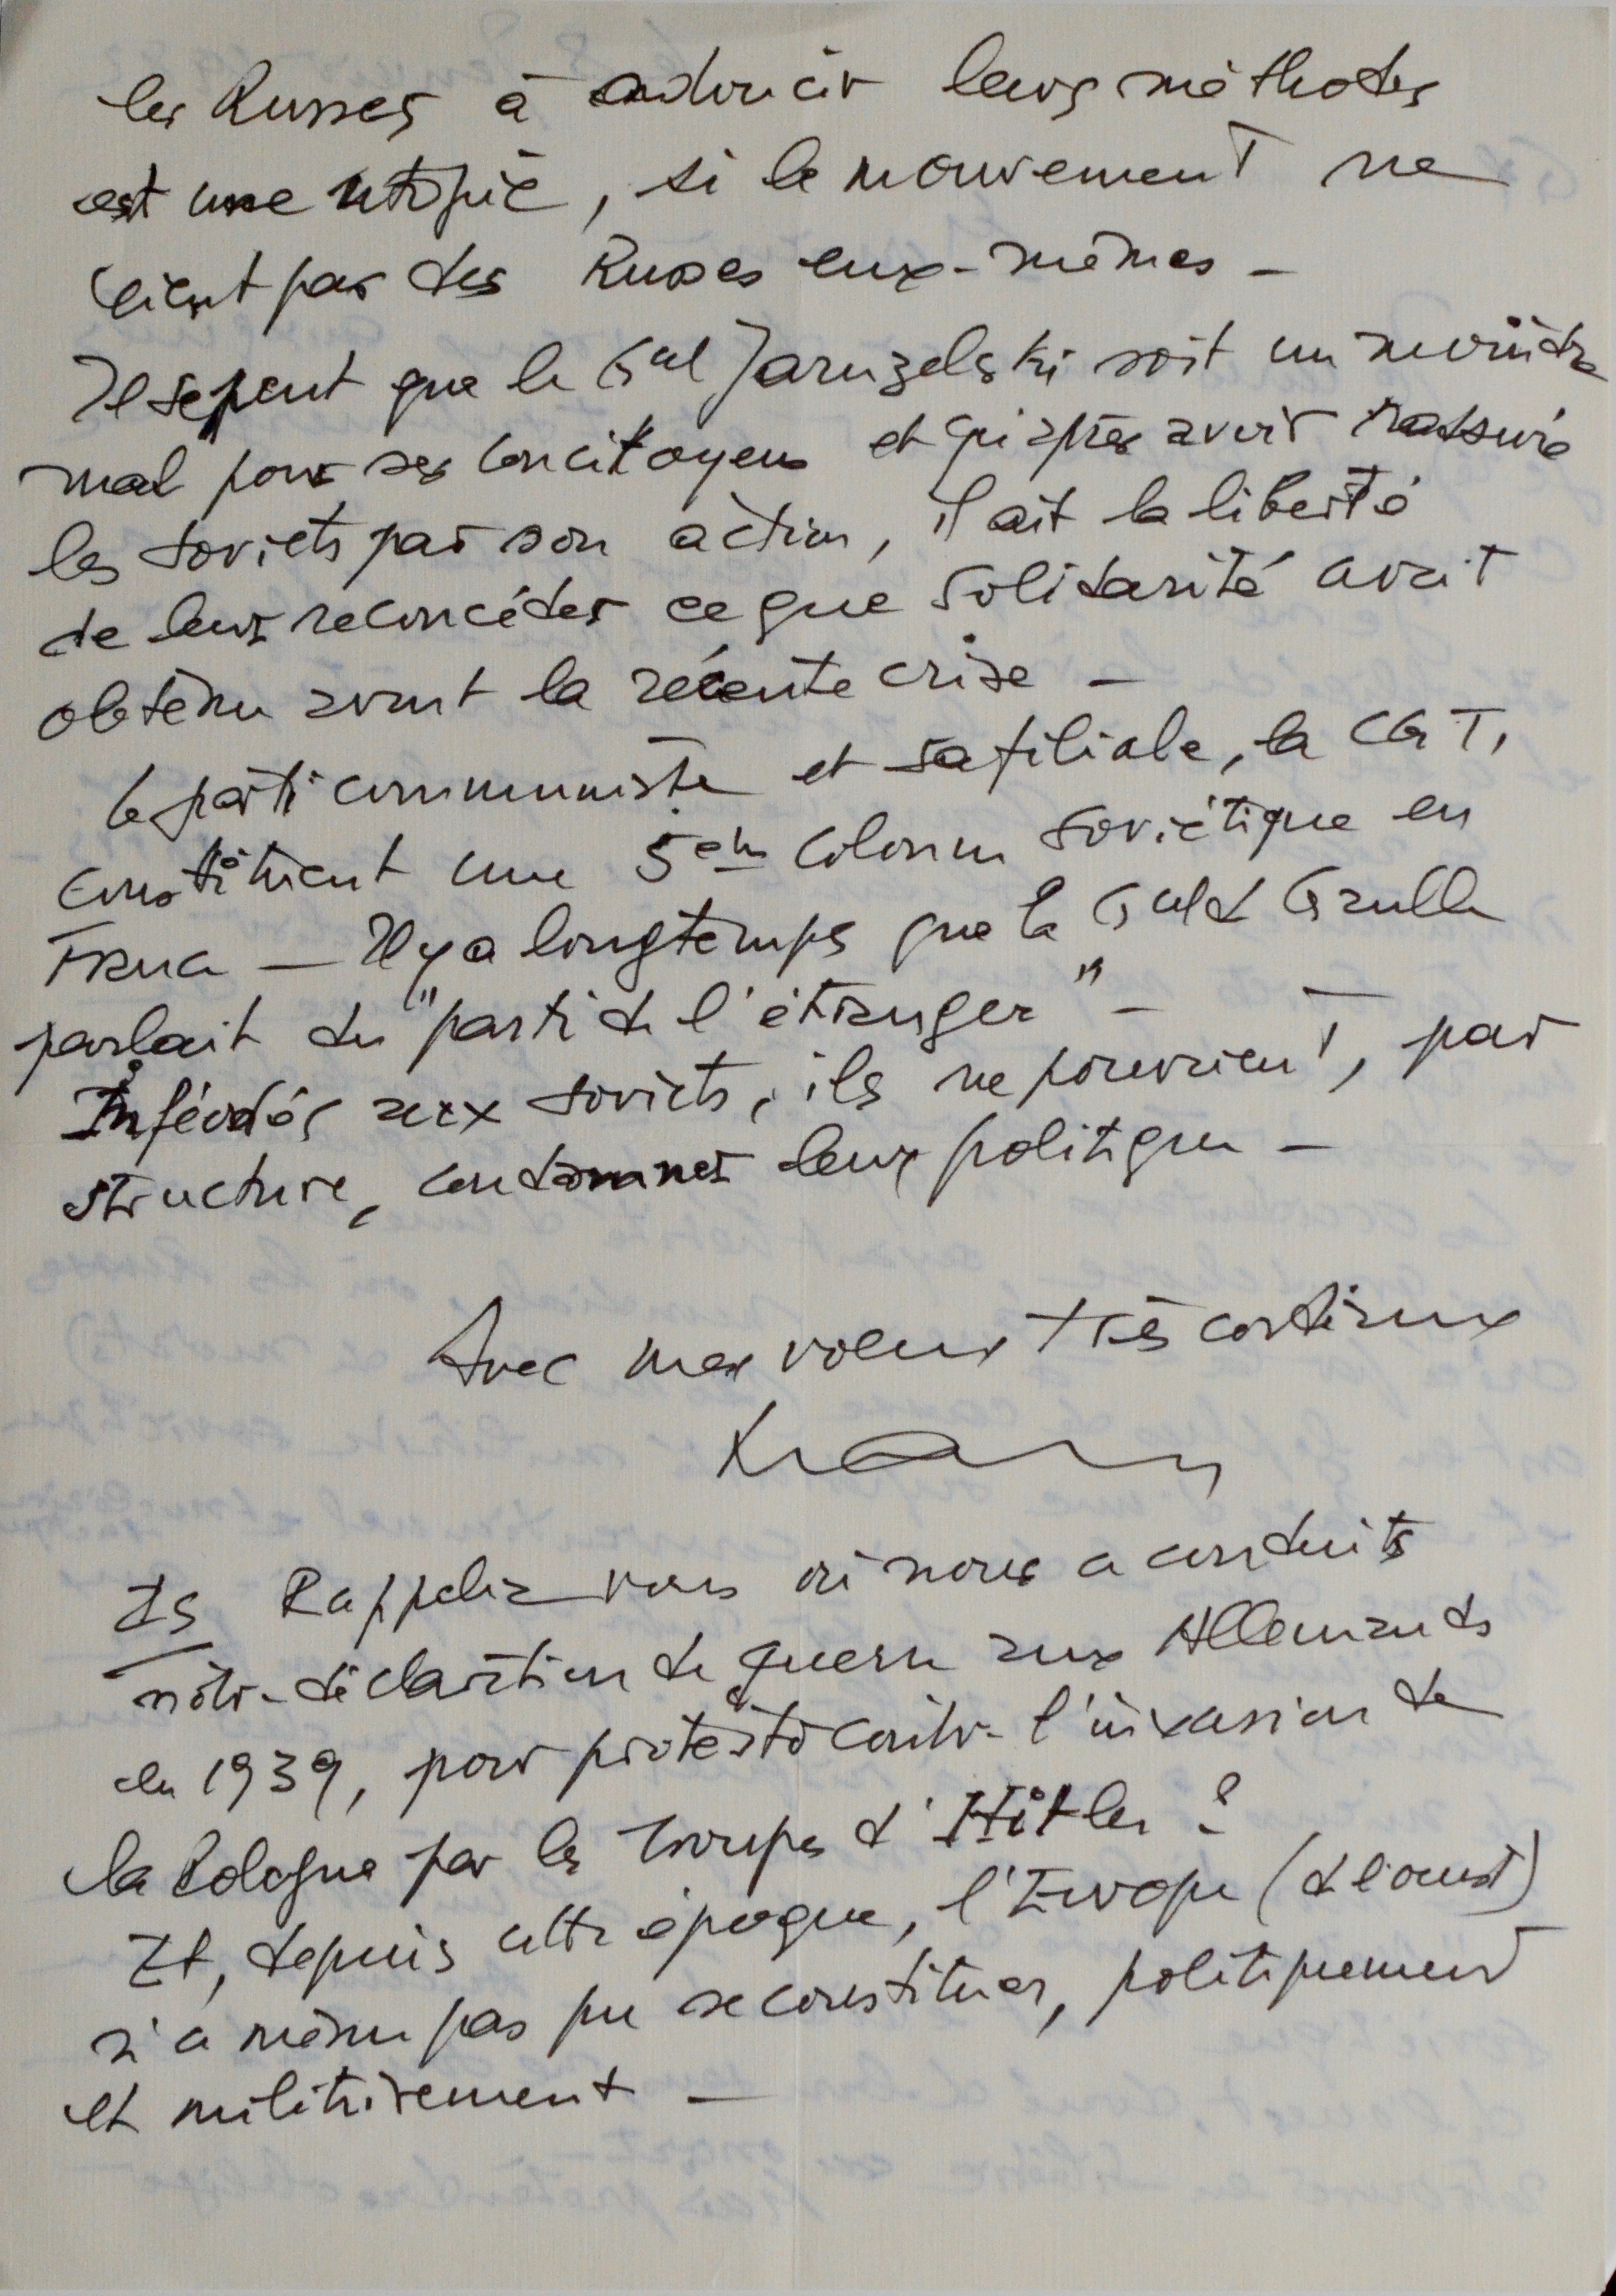 les Russes à adoucir leurs méthodes
est une utopie, si le mouvement ne
vient pas des Russes eux-mêmes -
Il se peut que le Gal Jaruzelski soit un moindre
mal pour ses concitoyens et qu'après avoir rassuré
les soviets par son action, il ait la liberté
de leur reconcéder ce que Solidarité avait
obtenu avant la récente crise -
Le parti communiste et sa filiale, la CGT,
constituent une 5eme colonne soviétique en
France - Il y a longtemps que le Gal de Gaulle
parlait du "parti de l'étranger" -
Inféodés aux soviets, ils ne pouvaient, par
structure, condamner leur politique -
Avec mes voeux très cordiaux
PS Rappelez vous où nous a conduits
notre déclaration de guerre aux Allemands
en 1939, pour protester contre l'invasion de
la Pologne par les troupes d'Hitler ?
Et, depuis cette époque, l'Europe (de l'ouest)
n'a même pas pu se constituer, politiquement
et militairement -